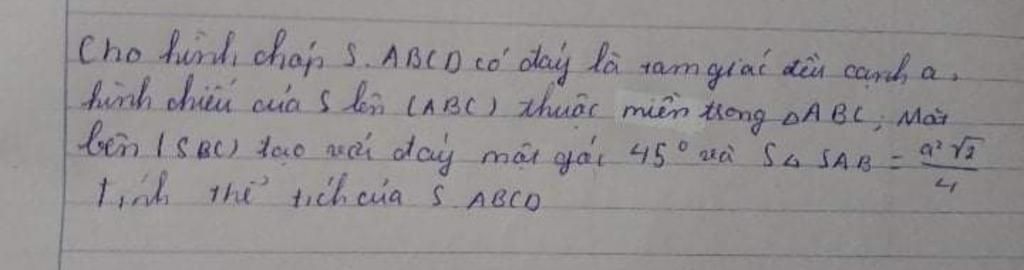 Cho hình chóp S.ABCD có đáy là tam giác đều cạnh a.
hình chiếu của S lên (ABC) thuộc miền trong △ABC, Mặt
bên (SBC) tạo với đáy một góc 45° và S△SAB = a²√2/4
Tính thể tích của S ABCD